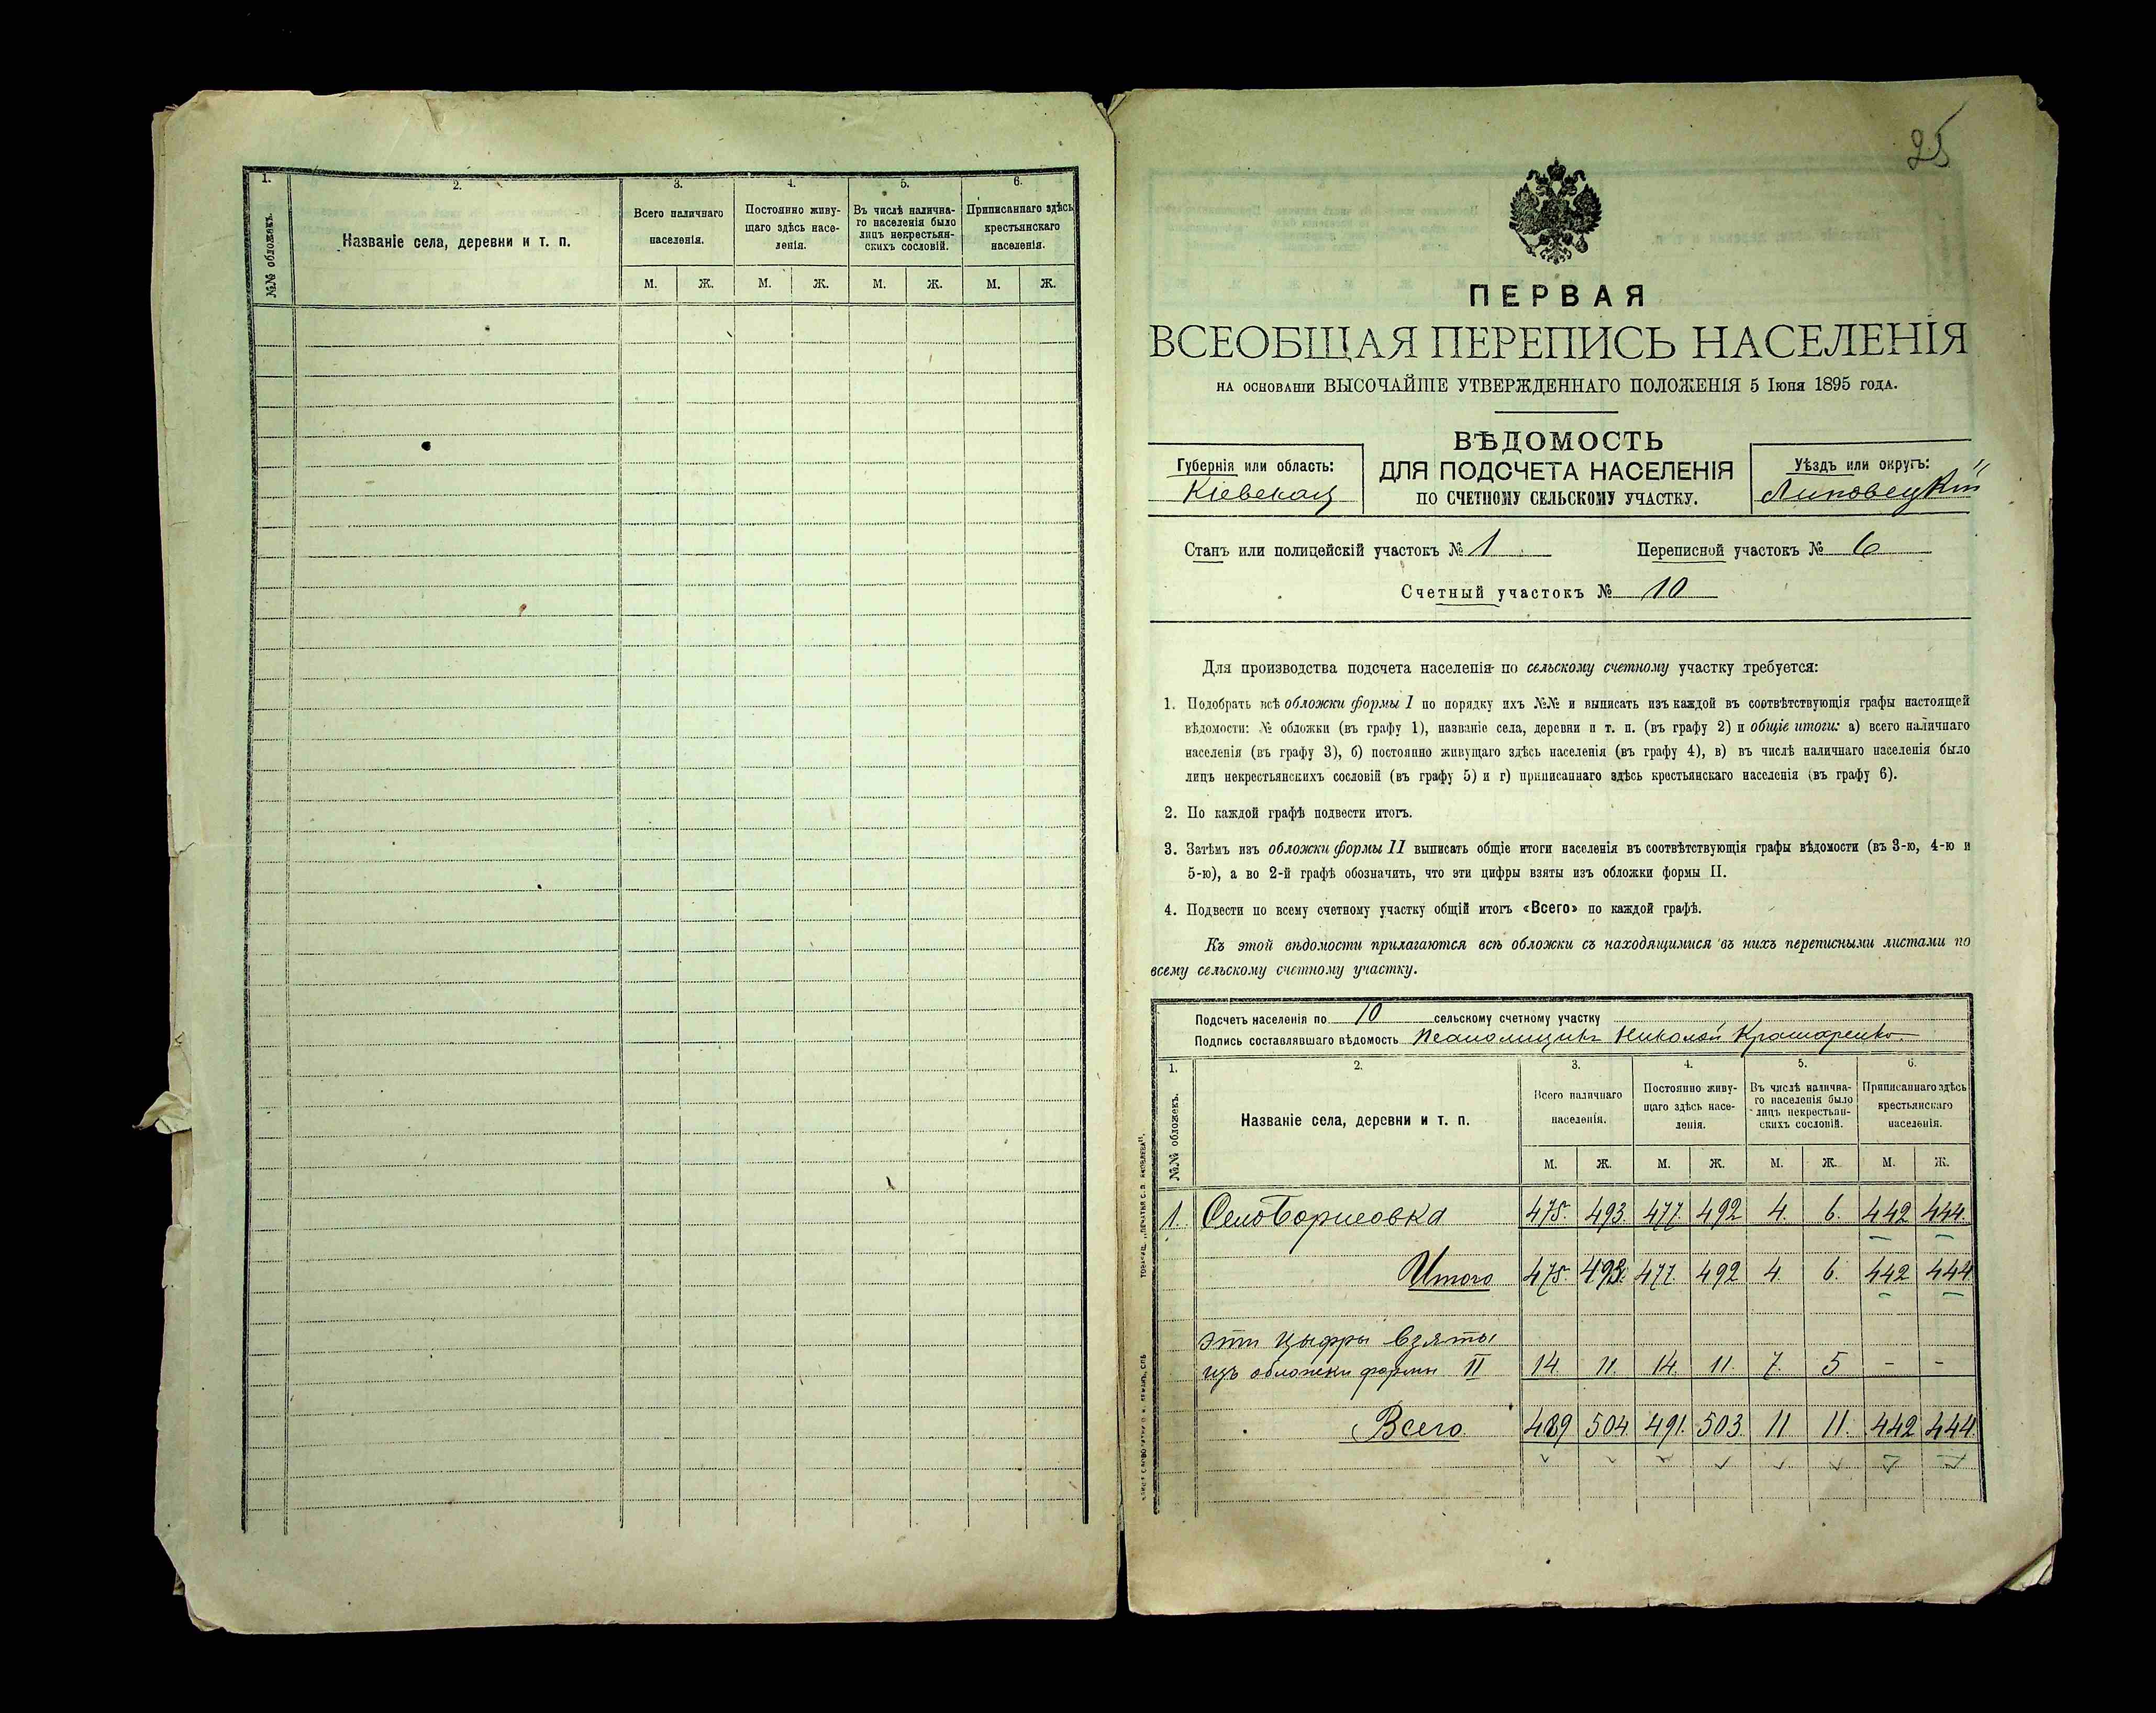 1.
2.
3.
4.
5.
6.
№№ обложекъ.
Названіе села, деревни и т. п.
Всего наличнаго населенія.
Постоянно живу-
щаго здѣсь насе-
ленія.
Въ числѣ налична-
го населенія было
лицъ некрестьян-
скихъ сословій.
Приписаннаго здѣсь
крестьянскаго
населенія.
М. Ж. М. Ж. М. Ж. М. Ж.
25
ПЕРВАЯ
ВСЕОБЩАЯ ПЕРЕПИСЬ НАСЕЛЕНІЯ
НА ОСНОВАНІИ ВЫСОЧАЙШЕ УТВЕРЖДЕННАГО ПОЛОЖЕНІЯ 5 Іюня 1895 ГОДА.
ВѢДОМОСТЬ
ДЛЯ ПОДСЧЕТА НАСЕЛЕНІЯ
ПО СЧЕТНОМУ СЕЛЬСКОМУ УЧАСТКУ.
Губернія или область:
Кіевская
Уѣздъ или округъ:
Липовецкій
Станъ или полицейскій участокъ № 1 Переписной участокъ № 6
Счетный участокъ № 10
Для производства подсчета населенія по сельскому счетному участку требуется:
1. Подобрать всѣ обложки формы I по порядку ихъ №№ и выписать изъ каждой въ соотвѣтствующія графы настоящей
вѣдомости: № обложки (въ графу 1), названіе села, деревни и т. п. (въ графу 2) и общіе итоги: а) всего наличнаго
населенія (въ графу 3), б) постоянно живущаго здѣсь населенія (въ графу 4), в) въ числѣ наличнаго населенія было
лицъ некрестьянскихъ сословій (въ графу 5) и г) приписаннаго здѣсь крестьянскаго населенія (въ графу 6).
2. По каждой графѣ подвести итогъ.
3. Затѣмъ изъ обложки формы II выписать общіе итоги населенія въ соотвѣтствующія графы вѣдомости (въ 3-ю, 4-ю и
5-ю), а во 2-й графѣ обозначить, что эти цифры взяты изъ обложки формы II.
4. Подвести по всему счетному участку общій итогъ «Всего» по каждой графѣ.
Къ этой вѣдомости прилагаются всѣ обложки съ находящимися въ нихъ переписными листами по
всему сельскому счетному участку.
Подсчетъ населенія по 10 сельскому счетному участку
Подпись составлявшаго вѣдомость Псаломщикъ Николай
1.
2.
3.
4.
5.
6.
№№ обложекъ.
Названіе села, деревни и т. п.
Всего наличнаго
населенія.
Постоянно живу-
щаго здѣсь насе-
ленія.
Въ числѣ налична-
го населенія было
лицъ некрестьян-
скихъ сословій.
Приписаннаго здѣсь
крестьянскаго
населенія.
М. Ж. М. Ж. М. Ж. М. Ж.
1. Село Борисовка 475. 493. 477. 492 4. 6. 442 444.
Итого 475. 493. 477. 492 4. 6. 442 444
эти цыфры взяты
изъ обложки формы II 14. 11. 14. 11. 7. 5 - -
Всего. 489 504. 491. 503. 11 11. 442 444.